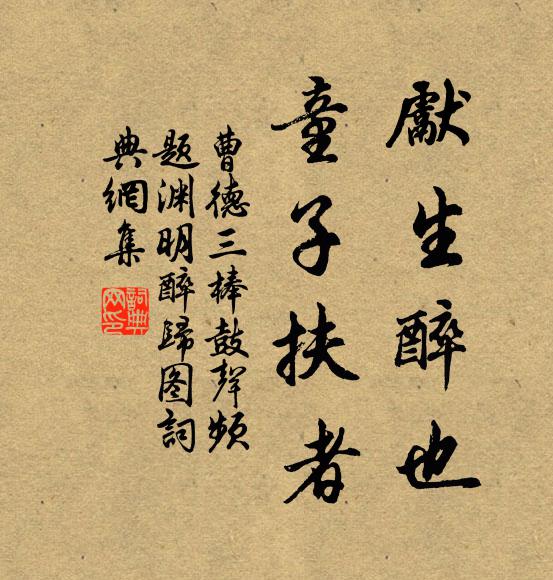 獻生醉也
童子扶者
曹德三棒鼓聲頻
题淵明醉歸图詞
典網集
詞典
网印